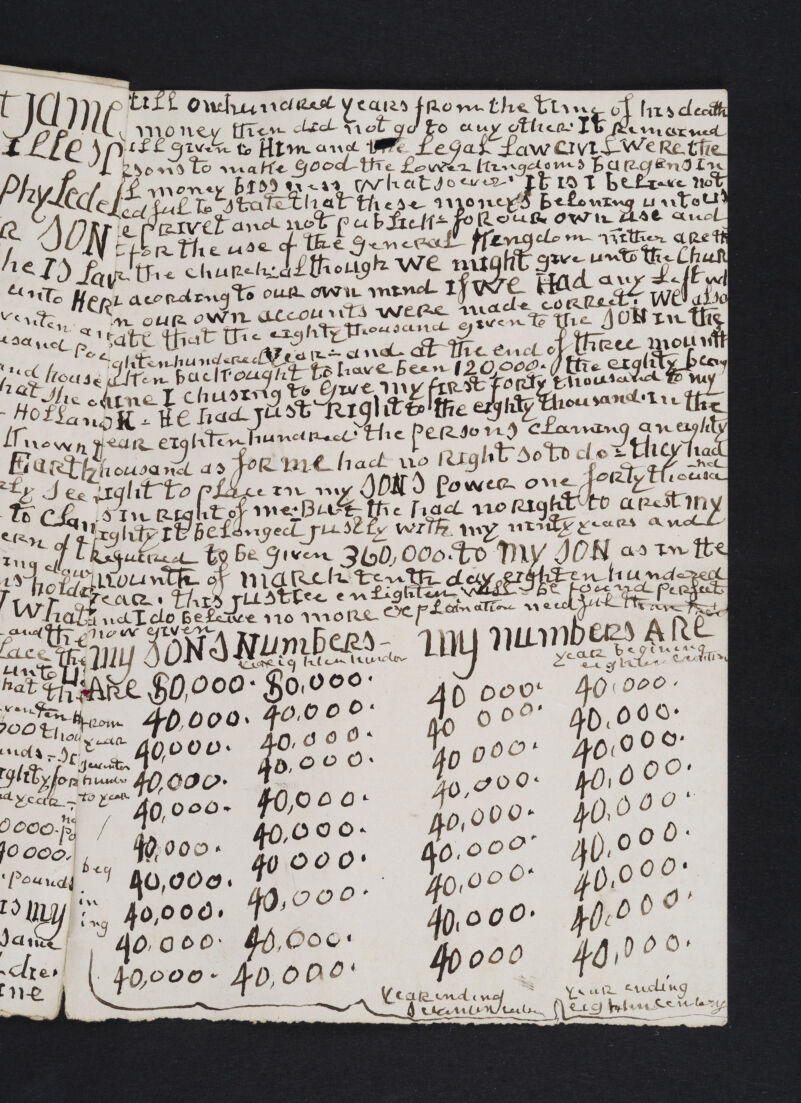 t Jame
illesp
Phyledel
R SON
he IS Law
unto HER
venten
usand
and house
that she
- HOLLAN
Known
Earth
to Clan
ern of t
ns holder
What
and the
Lace the
unto
hat th
venten
000 thou
ghty for
0000. Po
40000.
. Pounds
is my
Same
ine
till onehundred years from the time of his death
money then did not go to any other. It Remained
ill given to Him and the Legal Law Civil were the
rsons to make good the Lower Kingdoms bargens in
ll money bissness whatsoever. It is I believe not
edful to state that these moneys beloning unto us
e privet and not publick for our own use and
t for the use of the General Kengdom nither are th
r the church: although we might give unto the Chur
acording to our own mind if we Had any Left wh
n our own accounts were made correct: We also
tate that the eighty thousand given to the SON in the
ghtenhundered year - and at the end of three mounth
aften back ought to have been 120,000. the eighty being
mine I chusing to Give my first forty thousand to my
- He had just Right to the eighty thousand. In the
year eighten hundred. the persons claming an eighty
thousand as for me had no Right so to do = they had
right to place in my SONS power one forty thousand
s in right of me: But the had no right to arest my
ighty it belonged justly with my ninty years and I
required to be given 360,000. to my SON as in the
mounth of march tenth day eighten hundered
year. this justice enlighten will be found perfect
and I do beleve no more explanation needful than
now given
My SONS Numbers - My numbers ARE
eighten hunder
year begining
ARE 80,000. 80,000. 40 000. 40,000.
from 40,000. 40,000. 40 000. 40,000.
year 40,000. 40,000. 40 000. 40,000.
40,000. 40,000. 40,000. 40,000.
to year 40,000. 40,000. 40,000. 40,000.
40,000. 40,000. 40,000. 40,000.
beg 40,000. 40 000. 40,000. 40,000.
in 40,000. 40,000. 40,000. 40,000.
ing 40,000. 40,000. 40000 40,000.
40,000. 40,000.
Year ending
year ending